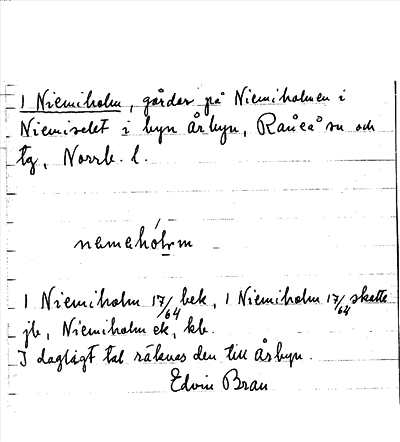 1 Niemiholm, gårdar på Niemiholmen i
Niemiselet i byn Årbyn, Råneå sn och
tg, Norrb. l.
namahólm
1 Niemiholm 17/64 bek, 1 Niemiholm 17/64 skatte
jb, Niemiholm ek, kb.
I dagligt tal räknas den till Årbyn.
Edvin Brau